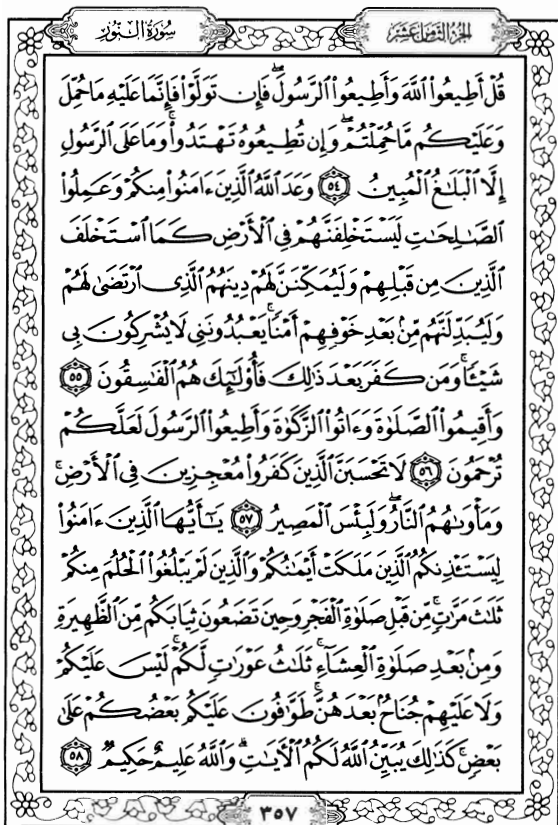 سُورَةُ النُّورِ
الجُزْءُ الثَّامِنَ عَشَرَ
قُلْ أَطِيعُوا۟ ٱللَّهَ وَأَطِيعُوا۟ ٱلرَّسُولَۖ فَإِن تَوَلَّوْا۟ فَإِنَّمَا عَلَيْهِ مَا حُمِّلَ
وَعَلَيْكُم مَّا حُمِّلْتُمْۖ وَإِن تُطِيعُوهُ تَهْتَدُوا۟ۚ وَمَا عَلَى ٱلرَّسُولِ
إِلَّا ٱلْبَلَـٰغُ ٱلْمُبِينُ ٥٤ وَعَدَ ٱللَّهُ ٱلَّذِينَ ءَامَنُوا۟ مِنكُمْ وَعَمِلُوا۟
ٱلصَّـٰلِحَـٰتِ لَيَسْتَخْلِفَنَّهُمْ فِى ٱلْأَرْضِ كَمَا ٱسْتَخْلَفَ
ٱلَّذِينَ مِن قَبْلِهِمْ وَلَيُمَكِّنَنَّ لَهُمْ دِينَهُمُ ٱلَّذِى ٱرْتَضَىٰ لَهُمْ
وَلَيُبَدِّلَنَّهُم مِّنۢ بَعْدِ خَوْفِهِمْ أَمْنًاۚ يَعْبُدُونَنِى لَا يُشْرِكُونَ بِى
شَيْـًٔاۚ وَمَن كَفَرَ بَعْدَ ذَٰلِكَ فَأُو۟لَـٰٓئِكَ هُمُ ٱلْفَـٰسِقُونَ ٥٥
وَأَقِيمُوا۟ ٱلصَّلَوٰةَ وَءَاتُوا۟ ٱلزَّكَوٰةَ وَأَطِيعُوا۟ ٱلرَّسُولَ لَعَلَّكُمْ
تُرْحَمُونَ ٥٦ لَا تَحْسَبَنَّ ٱلَّذِينَ كَفَرُوا۟ مُعْجِزِينَ فِى ٱلْأَرْضِۚ
وَمَأْوَىٰهُمُ ٱلنَّارُۖ وَلَبِئْسَ ٱلْمَصِيرُ ٥٧ يَـٰٓأَيُّهَا ٱلَّذِينَ ءَامَنُوا۟
لِيَسْتَـْٔذِنكُمُ ٱلَّذِينَ مَلَكَتْ أَيْمَـٰنُكُمْ وَٱلَّذِينَ لَمْ يَبْلُغُوا۟ ٱلْحُلُمَ مِنكُمْ
ثَلَـٰثَ مَرَّٰتٍۚ مِّن قَبْلِ صَلَوٰةِ ٱلْفَجْرِ وَحِينَ تَضَعُونَ ثِيَابَكُم مِّنَ ٱلظَّهِيرَةِ
وَمِنۢ بَعْدِ صَلَوٰةِ ٱلْعِشَآءِۚ ثَلَـٰثُ عَوْرَٰتٍ لَّكُمْۚ لَيْسَ عَلَيْكُمْ
وَلَا عَلَيْهِمْ جُنَاحٌۢ بَعْدَهُنَّۚ طَوَّٰفُونَ عَلَيْكُم بَعْضُكُمْ عَلَىٰ
بَعْضٍۚ كَذَٰلِكَ يُبَيِّنُ ٱللَّهُ لَكُمُ ٱلْـَٔايَـٰتِۗ وَٱللَّهُ عَلِيمٌ حَكِيمٌ ٥٨
٣٥٧